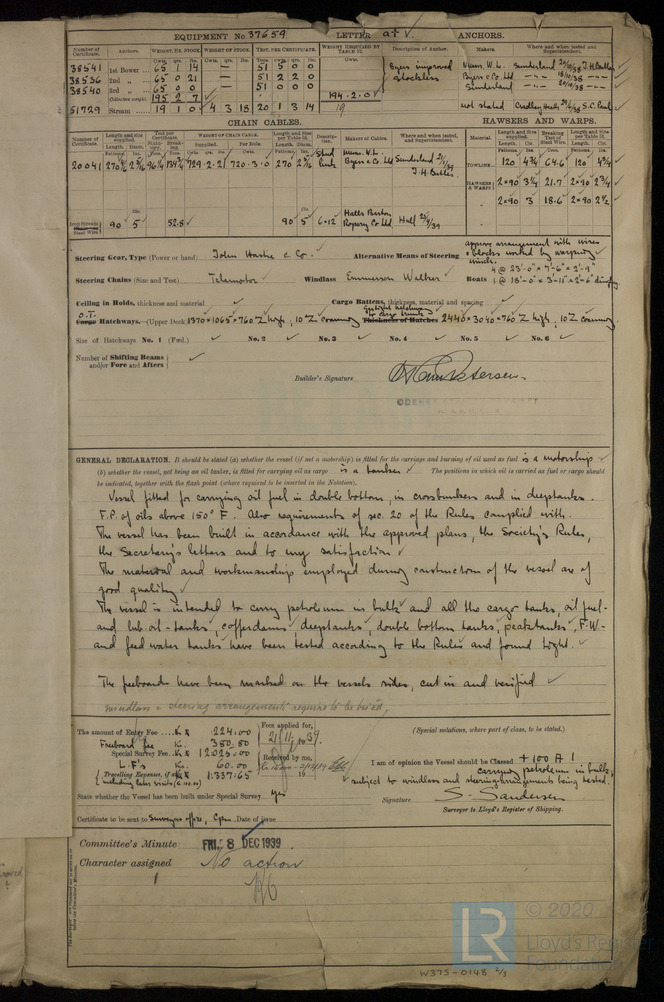 EQUIPMENT No 37659 LETTER at V. ANCHORS.
Number of Certificate. Anchors. WEIGHT, EX. STOCK. WEIGHT OF STOCK. TEST, PER CERTIFICATE. WEIGHT REQUIRED BY TABLE 21. Description of Anchor. Makers. Where and when tested and Superintendent.
38541 1st Bower ... 65 1 14 — 51 5 0 Byers improved stockless Sunderland J.H. Butler
38536 2nd „ ... 65 0 21 — 51 2 2 0 Byers & Co. Ltd
38540 3rd „ ... 65 0 0 — 51 2 0 Sunderland
Collective weight 195 2 7 194-2-0
51729 Stream ... 19 1 0 4 3 18 20 1 3 14 19 not stated Cradley Heath S.C. Paul
CHAIN CABLES. HAWSERS AND WARPS.
Number of Certificate. Length and size supplied. Test per Certificate WEIGHT OF CHAIN CABLE. Length and Size per Table 21. Description. Makers of Cables. Where and when tested, and Superintendent. Material. Length and Size supplied. Breaking Test of Steel Wire. Length and Size per Table 21.
20041 270 729-2-21 720-3-0 270 Stud link Byers & Co Ltd Sunderland J.H. Butler
TOWLINE 120 4¾ 64.6 120 4¾
HAWSERS & WARPS 2×90 3¼ 21.7 2×90 2¾
„ 2×90 3 18.6 2×90 2½
Iron Stream Steel Wire 90 5 52.8 90 5 6×12 Halls Barton Ropery Co Ltd Hull
Steering Gear, Type (Power or hand) John Hastie & Co. Alternative Means of Steering approx arrangement with wires & blocks worked by warping winch.
Steering Chains (Size and Test) Telemotor Windlass Emmerson Walker Boats 4 @ 23'-0" × 7'-6" × 2'-9"
1 @ 18'-0" × 3'-11" × 2'-6" dinghy
Ceiling in Holds, thickness and material Cargo Battens, thickness, material and spacing
O.T. Cargo Hatchways.—(Upper Deck) 1370×1065×760 Z high, 10 Z coaming Thickness of Hatches 2440×3040×760 Z high, 10 Z coaming
Size of Hatchways No. 1 (Fwd.) No. 2 No. 3 No. 4 No. 5 No. 6
Number of Shifting Beams and/or Fore and Afters
Builder's Signature
GENERAL DECLARATION. It should be stated (a) whether the vessel (if not a motorship) is fitted for the carriage and burning of oil used as fuel is a motorship
(b) whether the vessel, not being an oil tanker, is fitted for carrying oil as cargo is a tanker The positions in which oil is carried as fuel or cargo should
be indicated, together with the flash point (where required to be inserted in the Notation).
Vessel fitted for carrying oil fuel in double bottom, in crossbunkers and in deeptanks.
F.P. of oils above 150° F. Also requirements of sec. 20 of the Rules complied with.
The vessel has been built in accordance with the approved plans, the Society's Rules,
the Secretary's letters and to my satisfaction
The material and workmanship employed during construction of the vessel are of
good quality
The vessel is intended to carry petroleum in bulk and all the cargo tanks, oil fuel-
and lub. oil-tanks, cofferdams, deeptanks, double bottom tanks, peaktanks, F.W-
and feed water tanks have been tested according to the Rules and found tight.
The freeboards have been marked on the vessels sides, cut in and verified
windlass & steering arrangements require to be tested.
The amount of Entry Fee... Kr 224.00
Freeboard fee Kr. 380.80
Special Survey Fee... Kr 12025.00
L.F's Kr. 60.00
Travelling Expenses, if any Kr 1.337.65
Fees applied for, 21/11 1939.
Received by me,
19
State whether the Vessel has been built under Special Survey... yes
Certificate to be sent to Surveyors office, Cpn. Date of issue
(Special notations, where part of class, to be stated.)
I am of opinion the Vessel should be Classed + 100 A 1
carrying petroleum in bulk,
subject to windlass and steering arrangements being tested.
Signature S. Sandersen
Surveyor to Lloyd's Register of Shipping.
Committee's Minute FRI. 8 DEC 1939
Character assigned No action
LR © 2020
Lloyd's Register
Foundation
W375-0148 2/3